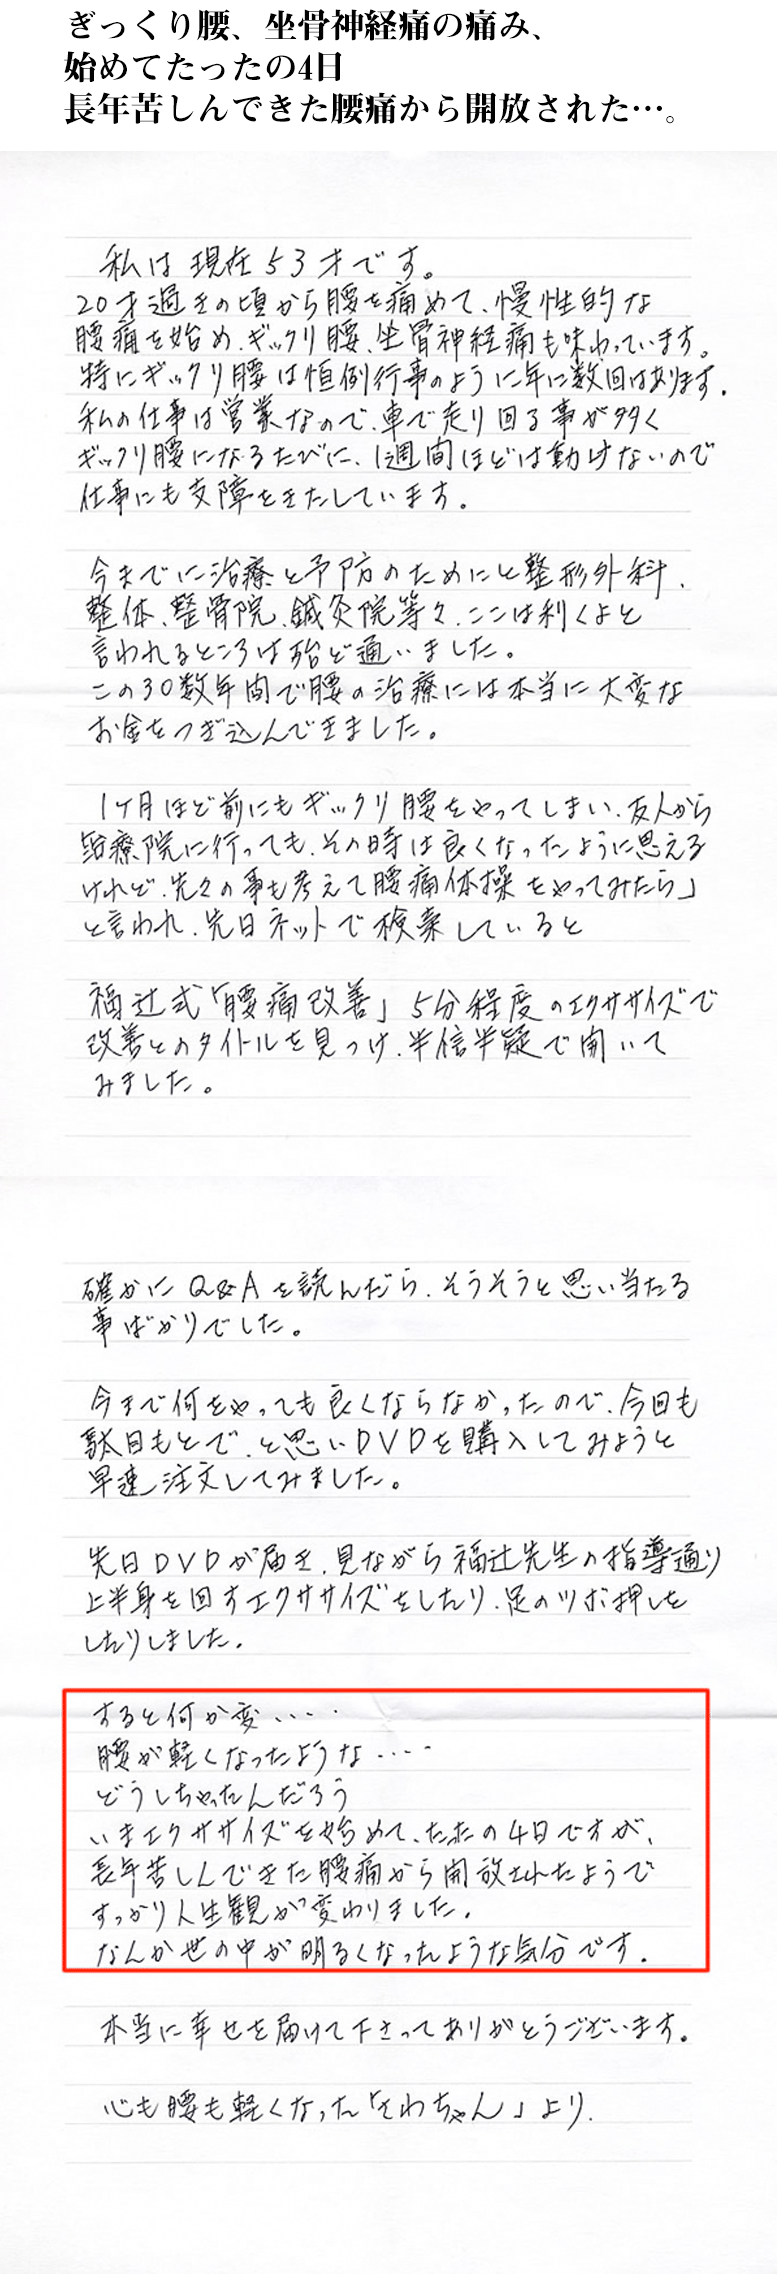 ぎっくり腰、坐骨神経痛の痛み、
始めてたったの4日
長年苦しんできた腰痛から開放された…。
私は現在53才です。
20才過きの頃から腰を痛めて、慢性的な
腰痛を始め、ギックリ腰、坐骨神経痛も味わっています。
特にギックリ腰は恒例行事のように年に数回はあります。
私の仕事は営業なので、車で走り回る事が多く
ギックリ腰になるたびに、1週間ほどは動けないので
仕事にも支障をきたしています。
今までに治療と予防のためにと整形外科、
整体、整骨院、鍼灸院等々、ここは利くよと
言われるところは殆ど通いました。
この30数年間で腰の治療には本当に大変な
お金をつぎ込んできました。
1ヶ月ほど前にもギックリ腰をやってしまい、友人から
治療院に行っても、その時は良くなったように思える
けれど、先々の事も考えて腰痛体操をやってみたら」
と言われ、先日ネットで検索していると
福辻式「腰痛改善」5分程度のエクササイズで
改善とのタイトルを見つけ、半信半疑で開いて
みました。
確かにQ&Aを読んだら、そうそうと思い当たる
事ばかりでした。
今まで何をやっても良くならなかったので、今回も
駄目もとで、と思いDVDを購入してみようと
早速注文してみました。
先日DVDが届き、見ながら福辻先生の指導通り
上半身を回すエクササイズをしたり、足のツボ押しを
したりしました。
すると何か変‥‥
腰が軽くなったような‥‥
どうしちゃったんだろう
いまエクササイズを始めて、たったの4日ですが、
長年苦しんできた腰痛から開放されたようで
すっかり人生観が変わりました。
なんか世の中が明るくなったような気分です。
本当に幸せを届けて下さってありがとうございます。
心も腰も軽くなった「さわちゃん」より.